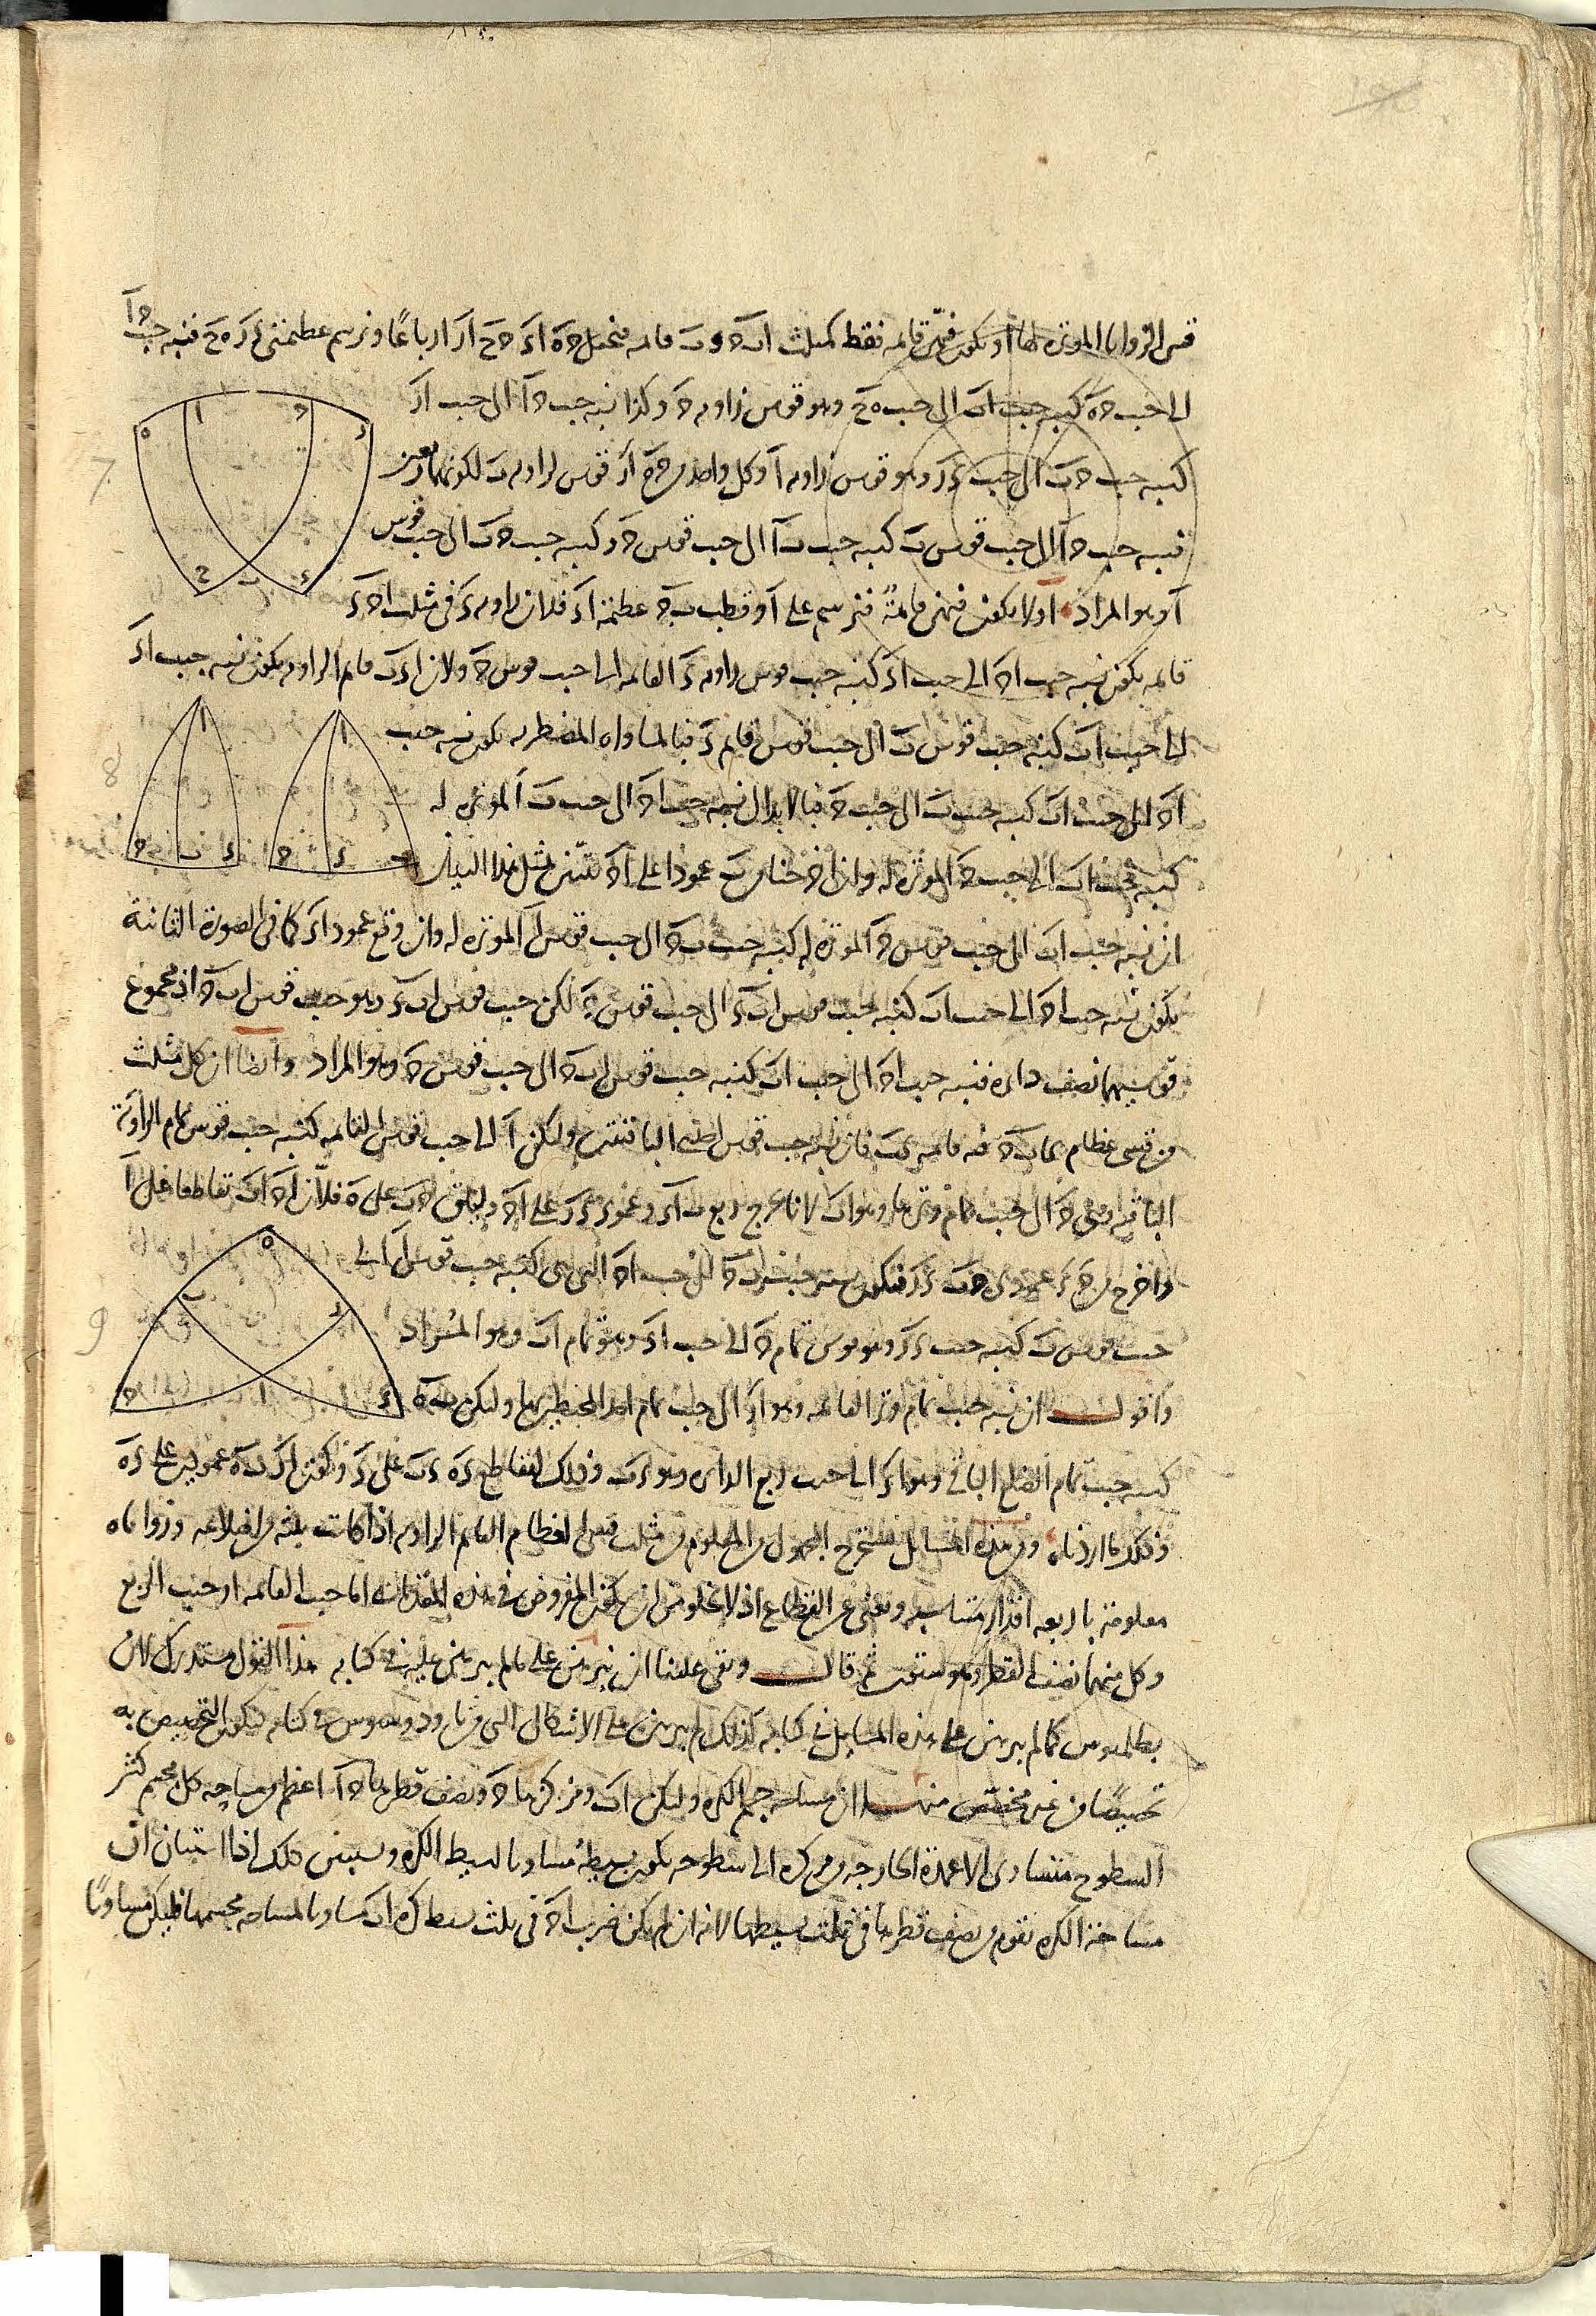 قسى الزوايا الموترة لها او يكون فيهن قايمه فقط كمثلث اب ح و ب قايمه فنجعل ح ه ا ء ح ح ا ز ارباعًا ونرسم عظيمتى ء ز ه ح فنسبه جيب ح ا
الى جيب ح ه كنسبه جيب اب الى جيب ه ح وهو قوس زاويه ح وكذا نسبه جيب ح ا الى جيب ا ز
كنسبه جيب ح ب الى جيب ء ز وهو قوس زاويه ا وكل واحد من ح ح ا ز قوس لزاويه ب لكونهما ربعين
فنسبه جيب ح ا الى جيب قوس ب كنسبه جيب ب ا الى جيب قوس ح وكنسبه جيب ح ب الى جيب قوس
ا وهو المراد او لا يكون فيهن قايمة فنرسم على ا وقطب ب ح عظيمة ا ء فلان زاويه ء فى مثلث ا ح ء
قايمه يكون نسبه جيب ا ح الى جيب ا ء كنسبه جيب قوس زاويه ء القايمه الى جيب قوس ح ولان ا ء ب قايم الزاويه يكون نسبه جيب ا ء
الى جيب اب كنسبه جيب قوس ب الى جيب قوس قايم ء فبالمساواه المضطربه يكون نسبه جيب
ا ح الى جيب اب كنسبه جيب ب الى جيب ح فبالابدال نسبه جيب ا ح الى جيب ب الموتره له
كنسبه جيب اب الى جيب ح الموتره له وان اخرجنا من ب عمودا على ا ح تبين بمثل هذا البيان
ان نسبه جيب اب الى جيب قوس ح الموتره له كنسبه جيب ب ح الى جيب قوس ا الموتره له وان وقع عمود ا ء كما فى الصورة الثانية
يكون نسبه جيب ا ح الى جيب اب كنسبه جيب قوس اب ء الى جيب قوس ح لكن جيب قوس اب ء وهو جيب قوس اب ح اذ مجموع
قوسيهما نصف دايره فنسبه جيب ا ح الى جيب اب كنسبه جيب قوس اب ح الى جيب قوس ح وهو المراد وايضا ان كل مثلث
من قسى عظام كاب ح فيه قايمه كب فان نسبه جيب قوس احدى الباقيتين ولتكن ا الى جيب قوس القايمه كنسبه جيب قوس تمام الزاوية
الباقيه وهى ح الى جيب تمام وترها وهو اب لانا نخرج ربع ب ا ء وعمود ء ز على ا ح وليلق ح ب على ه فلان ا ح اب تقاطعا على ا
واخرج من ح ء عمودى ح ب ء ز فيكون نسبه جيب ب ح الى جيب ا ح التى هى كنسبه جيب قوس ا الى
جيب قوس ب كنسبه جيب ء ز وهو قوس تمام ح الى جيب ا ء وهو تمام اب وهو المراد
واقول ان نسبه جيب تمام وتر القايمه وهو ا ز الى جيب تمام احد المحيطين بها وليكن ب ح
كنسبه جيب تمام الضلع الباقى وهو ا ء الى جيب ربع الدايره وهو ء ب وذلك لتقاطع ز ه ء ب على ء وكون ا ز ب ه عمودين على ء ه
وذلك ما اردناه ومن هذه المسايل نستخرج المجهول من المعلوم من مثلث قسى العظام القايم الزاويه اذا كانت ثلثه من اضلاعه وزواياه
معلومة باربعه اقدار متناسبه ونغنى عن القطاع اذ لا تخلو من ان يكون المفروض فى هذه المقدمات اما جيب القايمه او جيب الربع
وكل منهما نصف القطر وهو ستون ثم قال وبقى علينا ان نبرهن على ما لم يبرهن عليه فى كتابه هذا القول مستدرك لان
بطلميوس كما لم يبرهن على هذه المسايل فى كتابه كذلك لم يبرهن على الاشكال التى من ثاوذوسيوس فى كتابه ليكون التخصيص به
تخصيصًا من غير مخصص منها ان مساحه جسم الكره وليكن اب ومركزها ح ونصف قطرها ح ا اعظم من مساحه كل مجسم كثير
السطوح متساوى الاعمدة الخارجه من مركزه الى سطوحه يكون بسيطه مساويا لبسيط الكره وسيبين ذلك اذا استبان ان
مساحة الكره تقوم من نصف قطرها فى ثلث بسيطها لانه ان لم يكن ضرب ا ح فى ثلث بسيط كره اب مساويا لمساحه مجسمها فليكن مساويًا
7
8
9